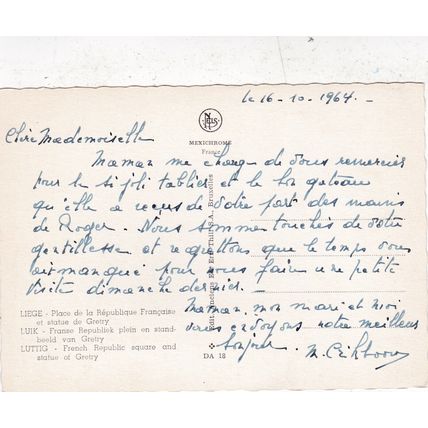 le 16-10-1964.-
Chère Mademoiselle
MEXICHROME
France
Maman me charge de vous remercier
pour le si joli tablier et le bon gateau
qu'elle a reçus de votre part des mains
de Roger. Nous sommes touchés de votre
gentillesse et regrettons que le temps vous
ait manqué pour nous faire une petite
visite dimanche dernier.
Maman, mon mari et moi
vous envoyons notre meilleur
bonjour.
LIEGE - Place de la République Française
et statue de Gretry
LUIK - Franse Republiek plein en stand-
beeld van Gretry
LUTTIG - French Republic square and
statue of Gretry
DA 18
Thill S.A., Bruxelles